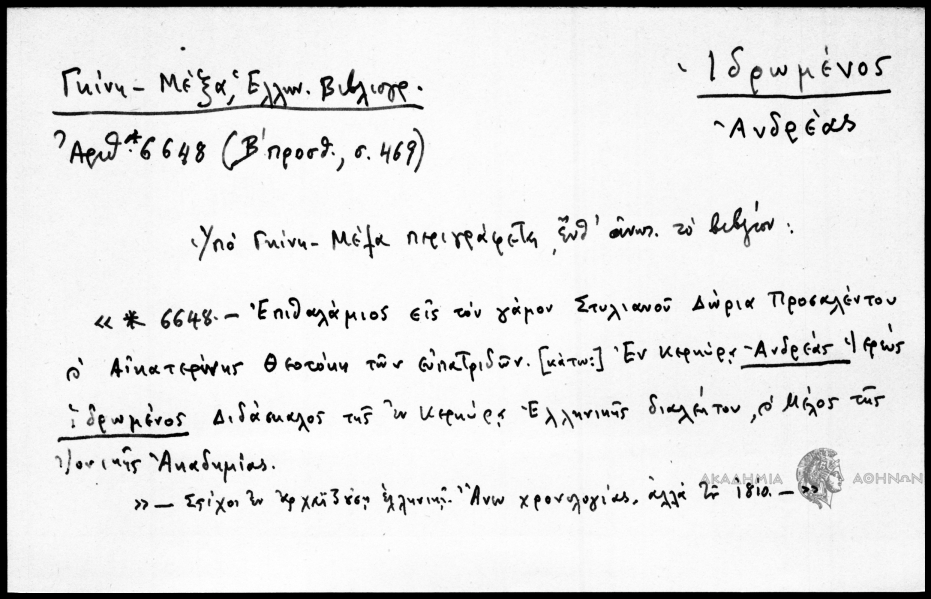 Γκίνη - Μέξα, Ἑλλην. Βιβλιογρ.
Ἰδρωμένος
Ἀνδρέας
Ἀριθ. *6648 (Β΄ προσθ., σ. 469)
Ὑπὸ Γκίνη - Μέξα περιγράφεται, ἔνθ' ἀνωτ. τὸ βιβλίον:
« * 6648. — Ἐπιθαλάμιος εἰς τὸν γάμον Στυλιανοῦ Δώρια Προσαλέντου
Αἰκατερίνης Θεοτόκη τῶν εὐπατριδῶν. [κάτω:] Ἐν Κερκύρᾳ Ἀνδρέας Ἱερεὺς
Ἰδρωμένος Διδάσκαλος τῆς ἐν Κερκύρᾳ Ἑλληνικῆς διαλέκτου, Μέλος τῆς
Ἰονικῆς Ἀκαδημίας.
» — Στίχοι ἐν ἀρχαϊζούσῃ ἑλληνικῇ. Ἄνευ χρονολογίας, ἀλλὰ τοῦ 1810. — »
ΑΚΑΔΗΜΙΑ ΑΘΗΝΩΝ